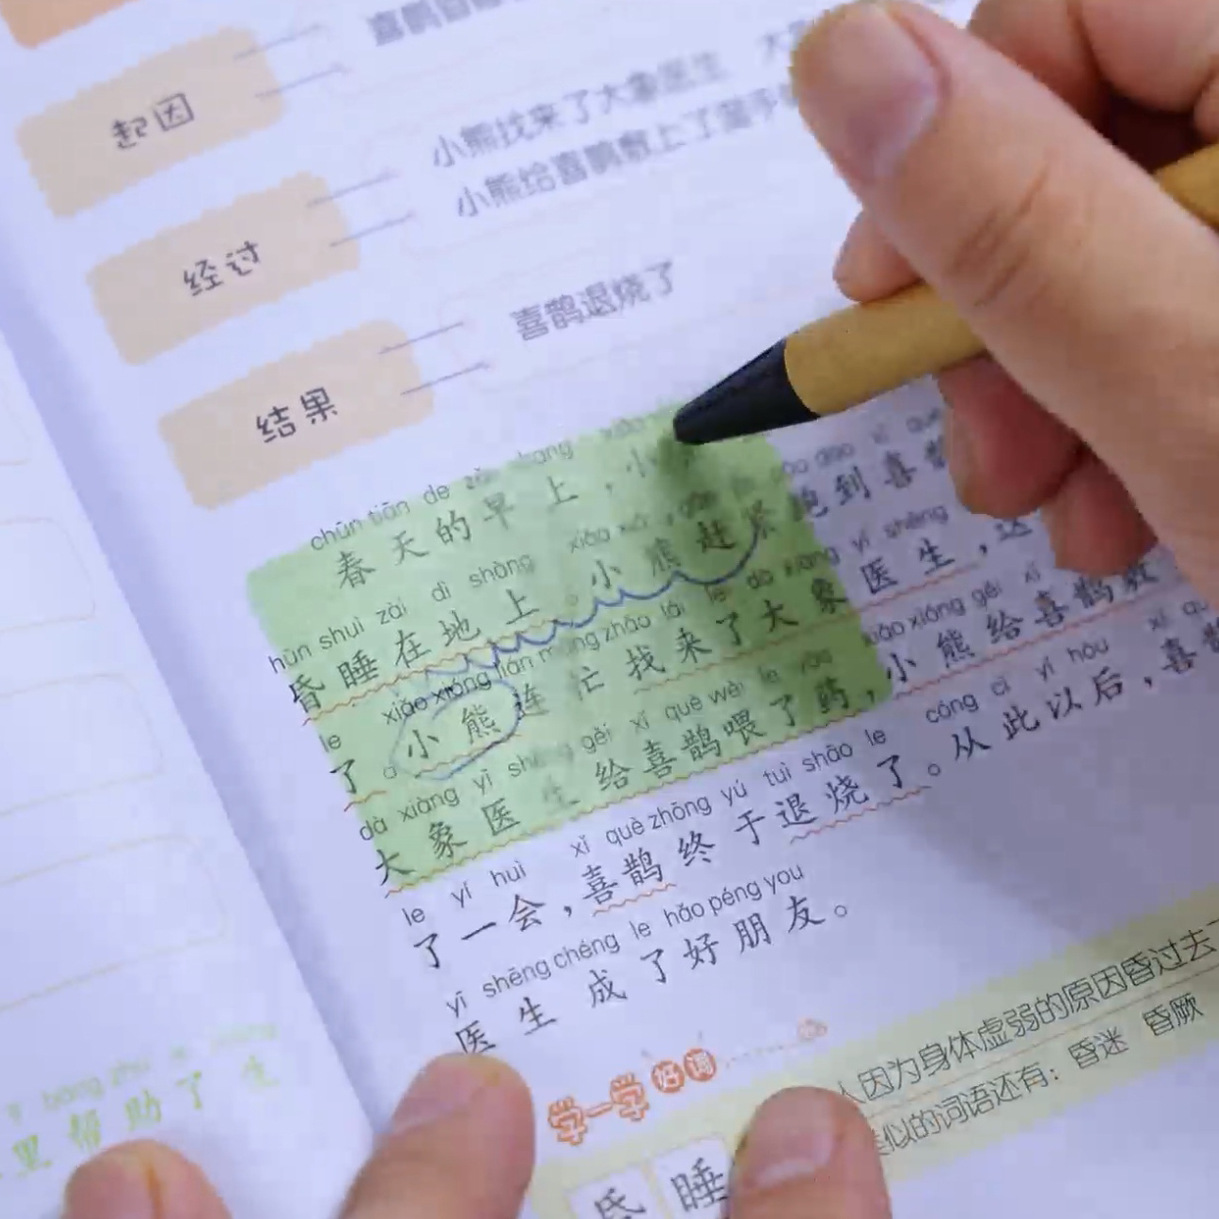 起因
喜鹊
小熊找来了大象医生 大
小熊给喜鹊敷上了湿手
经过
喜鹊退烧了
结果
chūn tiān de zǎo shang xiǎo
春天的早上，小
hūn shuì zài dì shàng xiǎo xióng gǎn dào xǐ què
昏睡在地上。小熊赶紧跑到喜
le xiǎo xióng lián máng zhǎo lái le dà xiàng yī shēng
了。小熊连忙找来了大象医生，这
dà xiàng yī shēng gěi xǐ què wèi le yào xiǎo xióng gěi xǐ
大象医生给喜鹊喂了药，小熊给喜鹊敷
le yí huì xǐ què zhōng yú tuì shāo le cóng cǐ yǐ hòu xǐ què
了一会，喜鹊终于退烧了。从此以后，喜鹊
yī shēng chéng le hǎo péng you
医生成了好朋友。
学一学 好词
人因为身体虚弱的原因昏过去
类似的词语还有：昏迷 昏厥
昏睡
bāng zhù
里帮助了生